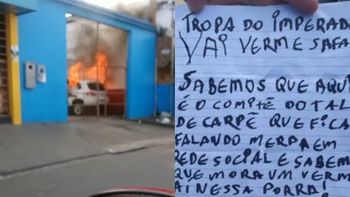 TROPA DO IMPERAD
VAI VERME SAFA
SABEMOS QUE AQUI
É O COMITÊ DO TAL
DE CARPÊ QUE FICA
FALANDO MERDA EM
REDE SOCIAL E SABEM
QUE MORA UM VERM
AI NESSA PORRA!